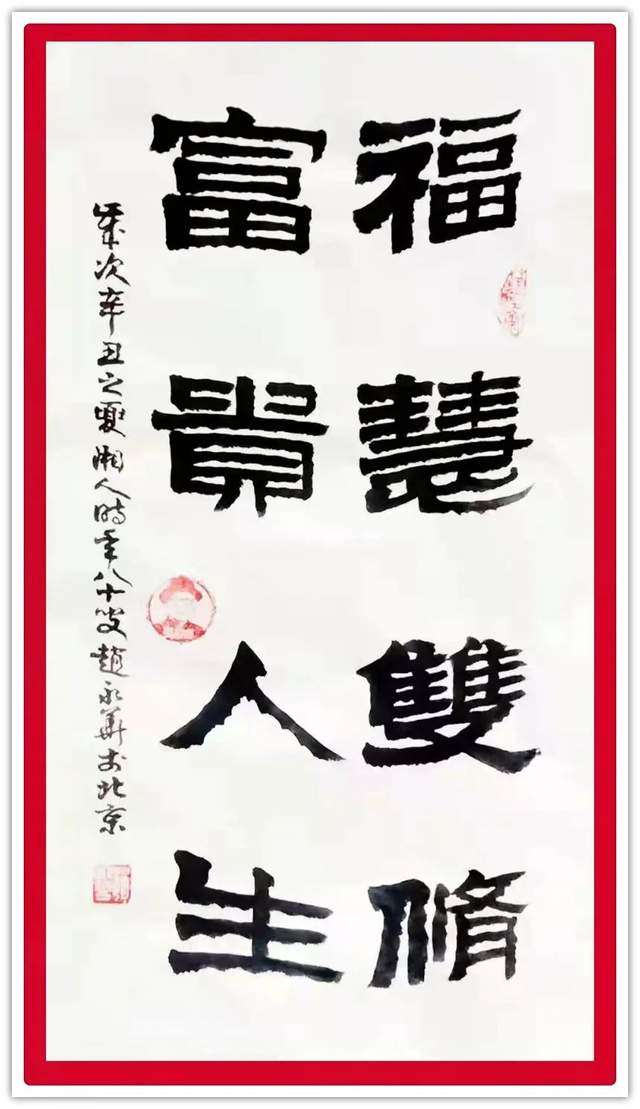 福慧雙脩
富貴人生
歲次辛丑之夏湘人時年八十叟趙永華書於北京